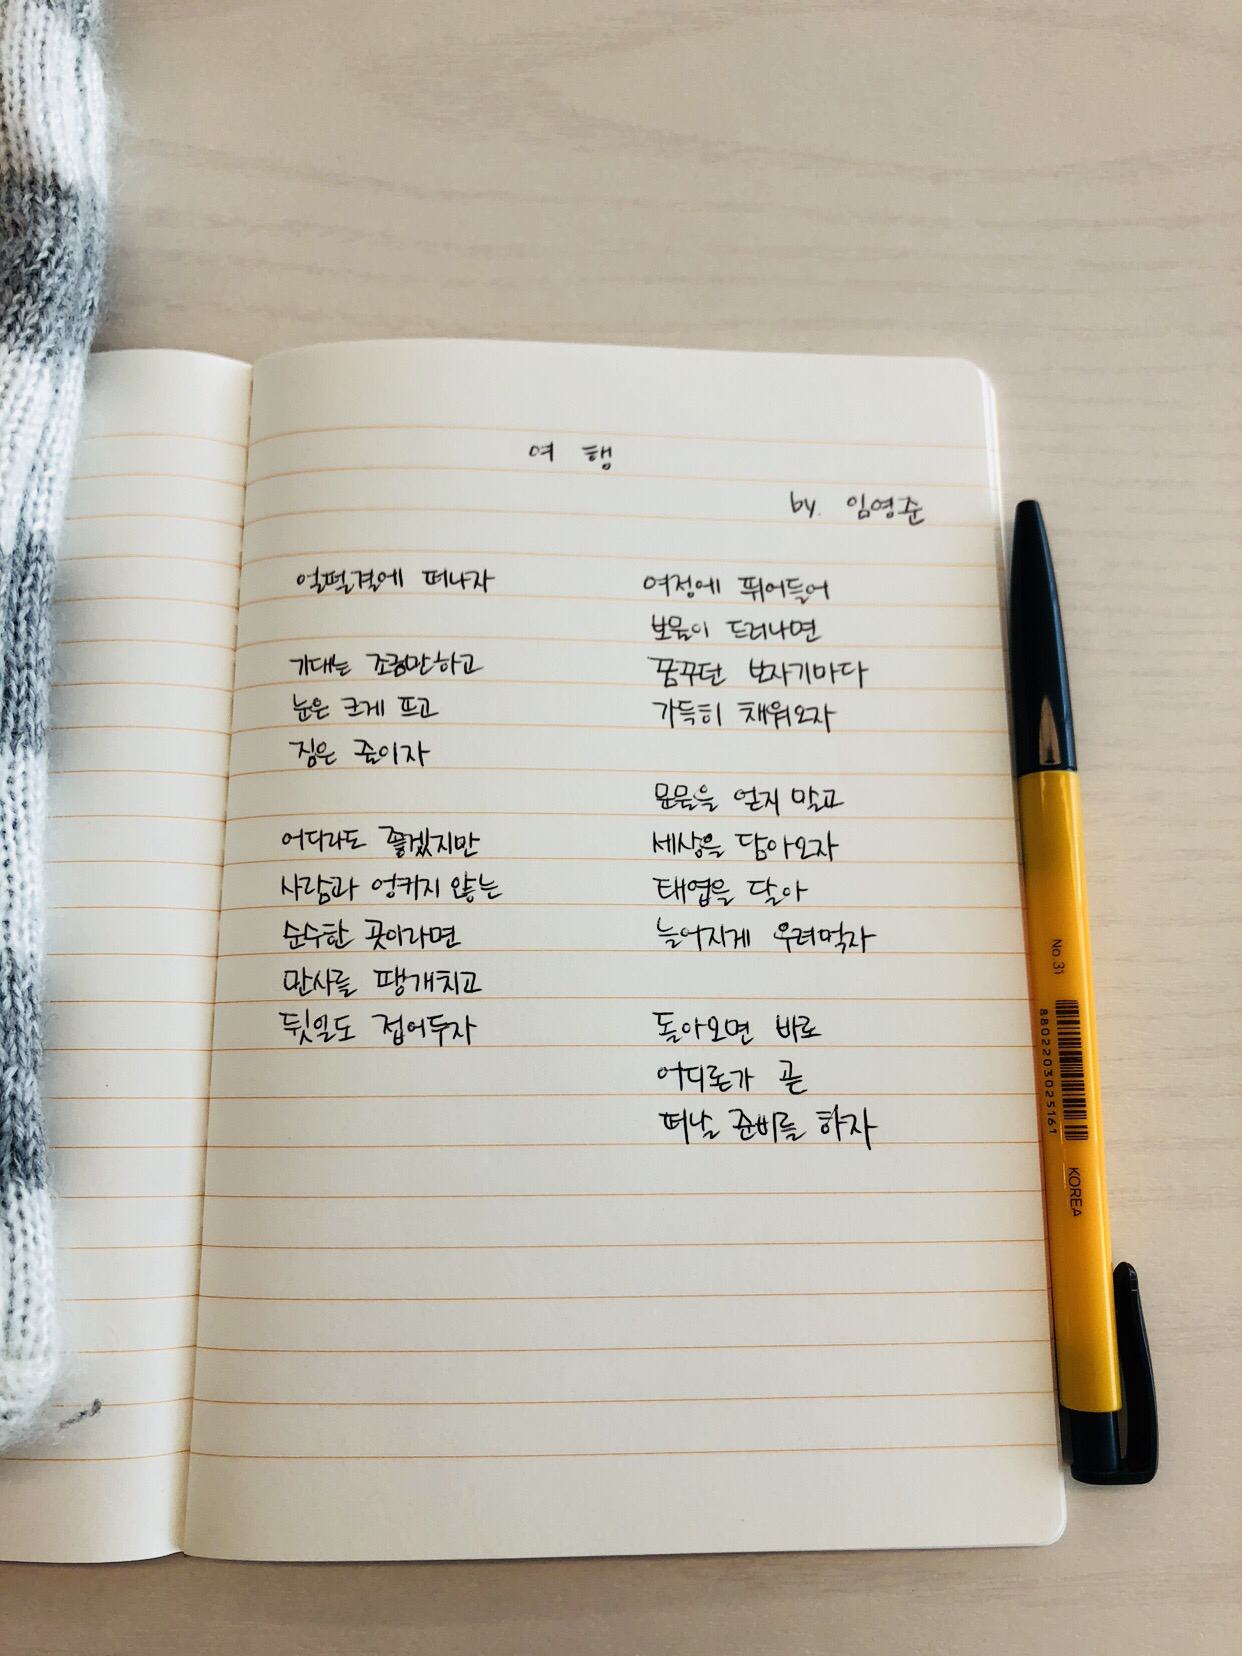 여 행
by. 임영준
얼떨결에 떠나자
기대는 조그만하고
눈은 크게 뜨고
짐은 줄이자
어디라도 좋겠지만
사람과 엉키지 않는
순수한 곳이라면
만사를 팽개치고
뒷일도 접어두자
여정에 뛰어들어
보물이 드러나면
꿈꾸던 보자기마다
가득히 채워오자
문물을 얻지 말고
세상을 담아오자
태엽을 달아
늘어지게 우려먹자
돌아오면 바로
어디론가 곧
떠날 준비를 하자
No.31
8802203025161
KOREA